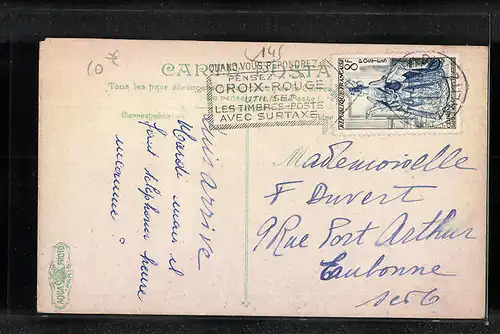 (0 *
(14(
CARTE POSTALE
Tous les pays étrangers
Correspondance
QUAND VOUS RÉPONDREZ
PENSEZ À LA
CROIX-ROUGE
UTILISEZ
LES TIMBRES-POSTE
AVEC SURTAXE
8F
POSTES
suis arrivée
Mardi mais il
faut téléphoner heure
inconnue ?
Mademoiselle
F Duvert
9 Rue Port Arthur
Eaubonne
S et O